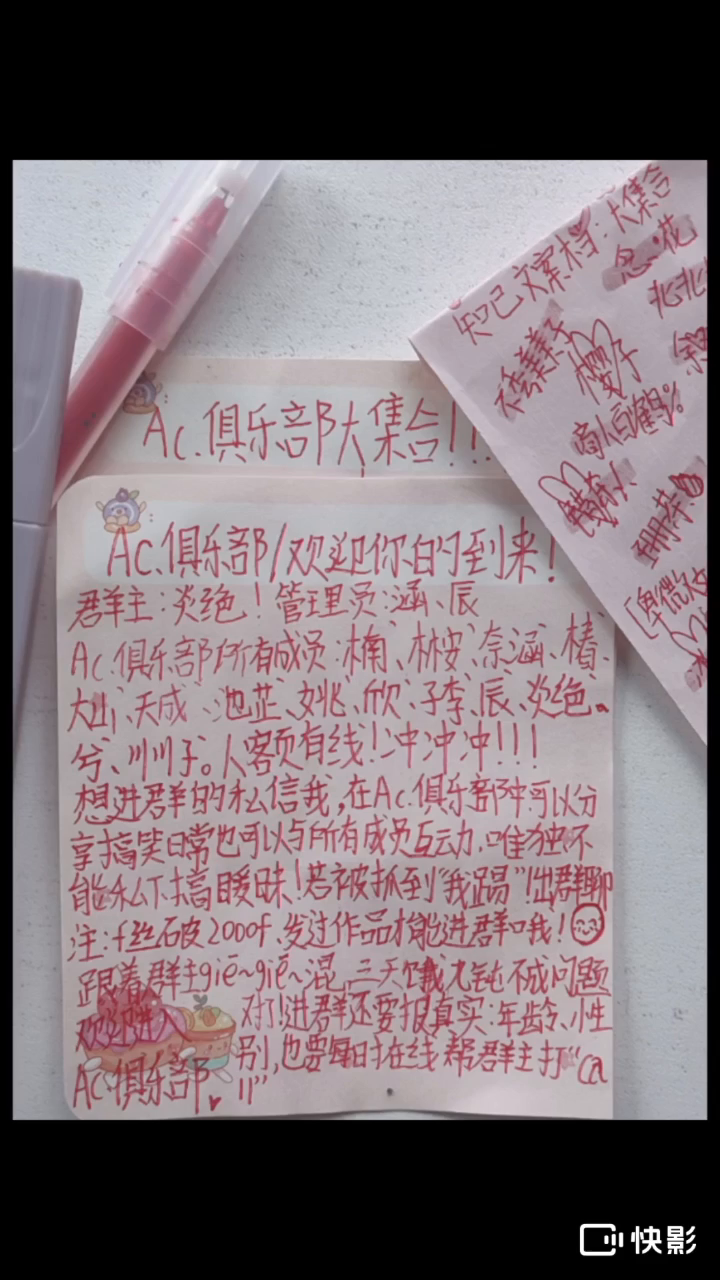 Ac.俱乐部大集合!!!
Ac.俱乐部/欢迎你的到来!
群主:炎绝!管理员:涵、辰
Ac.俱乐部所有成员:楠、林安、奈涵、椿、
大山、天成、池芷、姚、欣、子李、辰、炎绝、
兮、川川子。人客页有线!冲冲冲!!!
想进群的私信我,在Ac.俱乐部中可以分
享搞笑日常也可以与所有成员互动.唯独不
能私下搞暧昧!若被抓到“我踢”!出群聊
注:f丝破2000f.发过作品才能进群哦!
跟着群主giē~giē~混,三天饿九钝不成问题
欢迎进入
Ac.俱乐部
对!进群还要报真实:年龄、性
别,也要每日在线帮群主打“ca
ll”
知己文案档:大集合
念、花
北北
樱子
卑微
快影